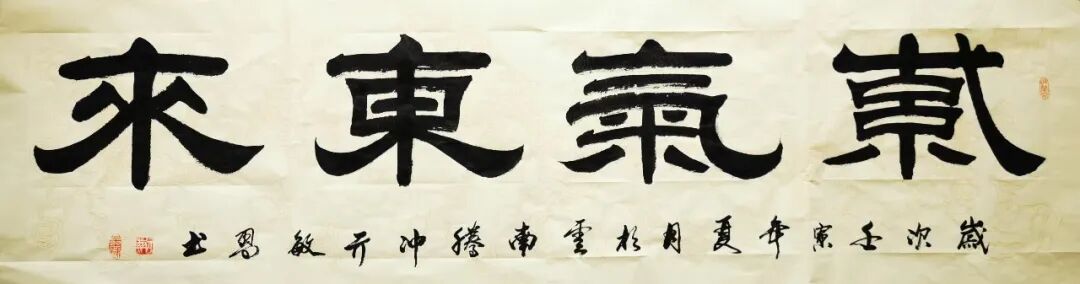 紫氣東來
歲次壬寅年夏月於雲南騰冲亓敏習书